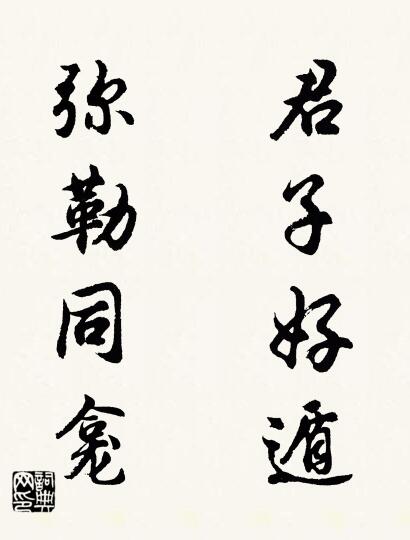 君子好遁
弥勒同龛
詞典網印